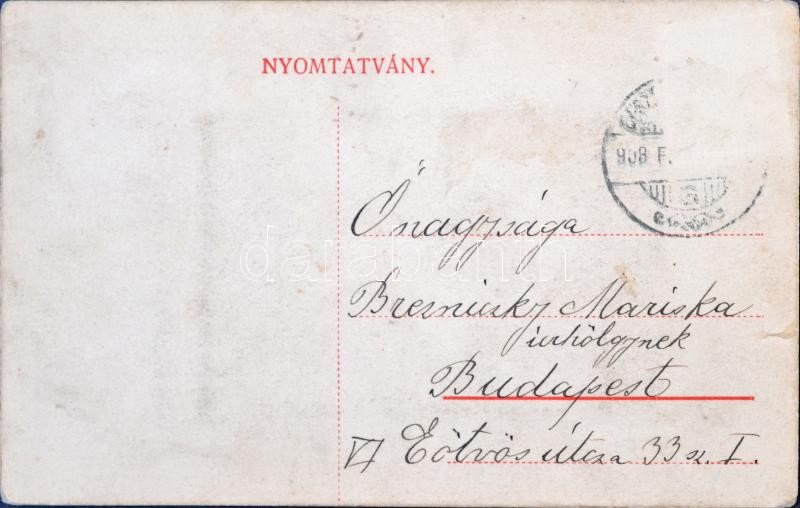 NYOMTATVÁNY.
908 F.
Ónagysága
darabanth
Bresniczky Mariska
úrhölgynek
Budapest
VI Eötvös útcza 33 sz. I.